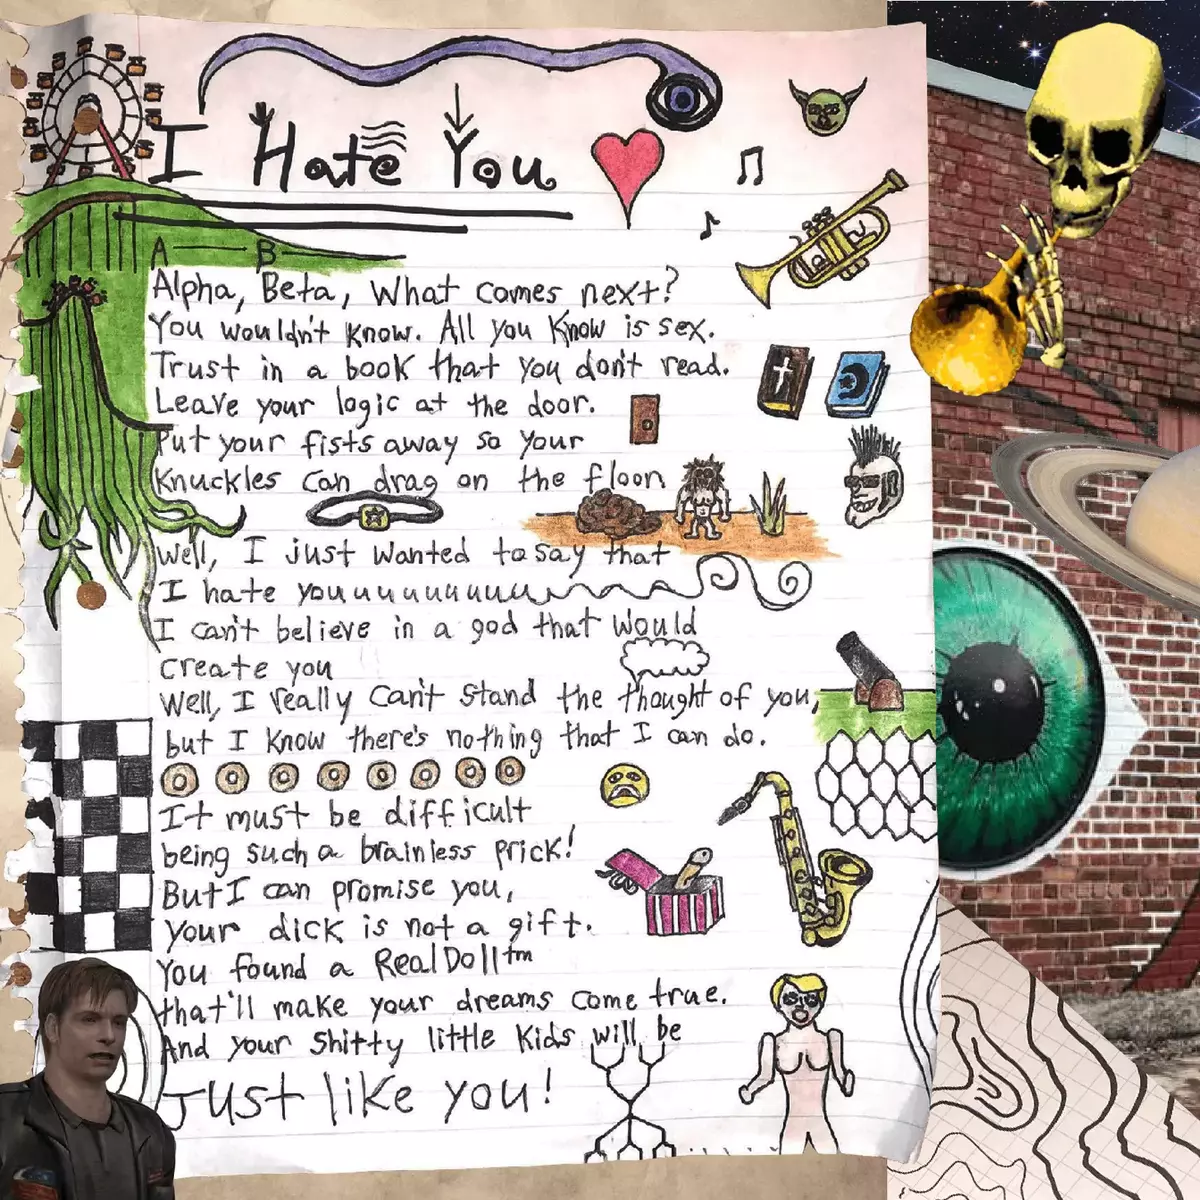 I Hate You
A B
Alpha, Beta, What comes next?
You wouldn't know. All you know is sex.
Trust in a book that you don't read.
Leave your logic at the door.
Put your fists away so your
knuckles can drag on the floor
Well, I just wanted to say that
I hate youuuuuuuuu
I can't believe in a god that would
create you
Well, I really can't stand the thought of you,
but I know there's nothing that I can do.
It must be difficult
being such a brainless prick!
But I can promise you,
your dick is not a gift.
You found a RealDoll™
that'll make your dreams come true.
And your shitty little kids will be
Just like you!